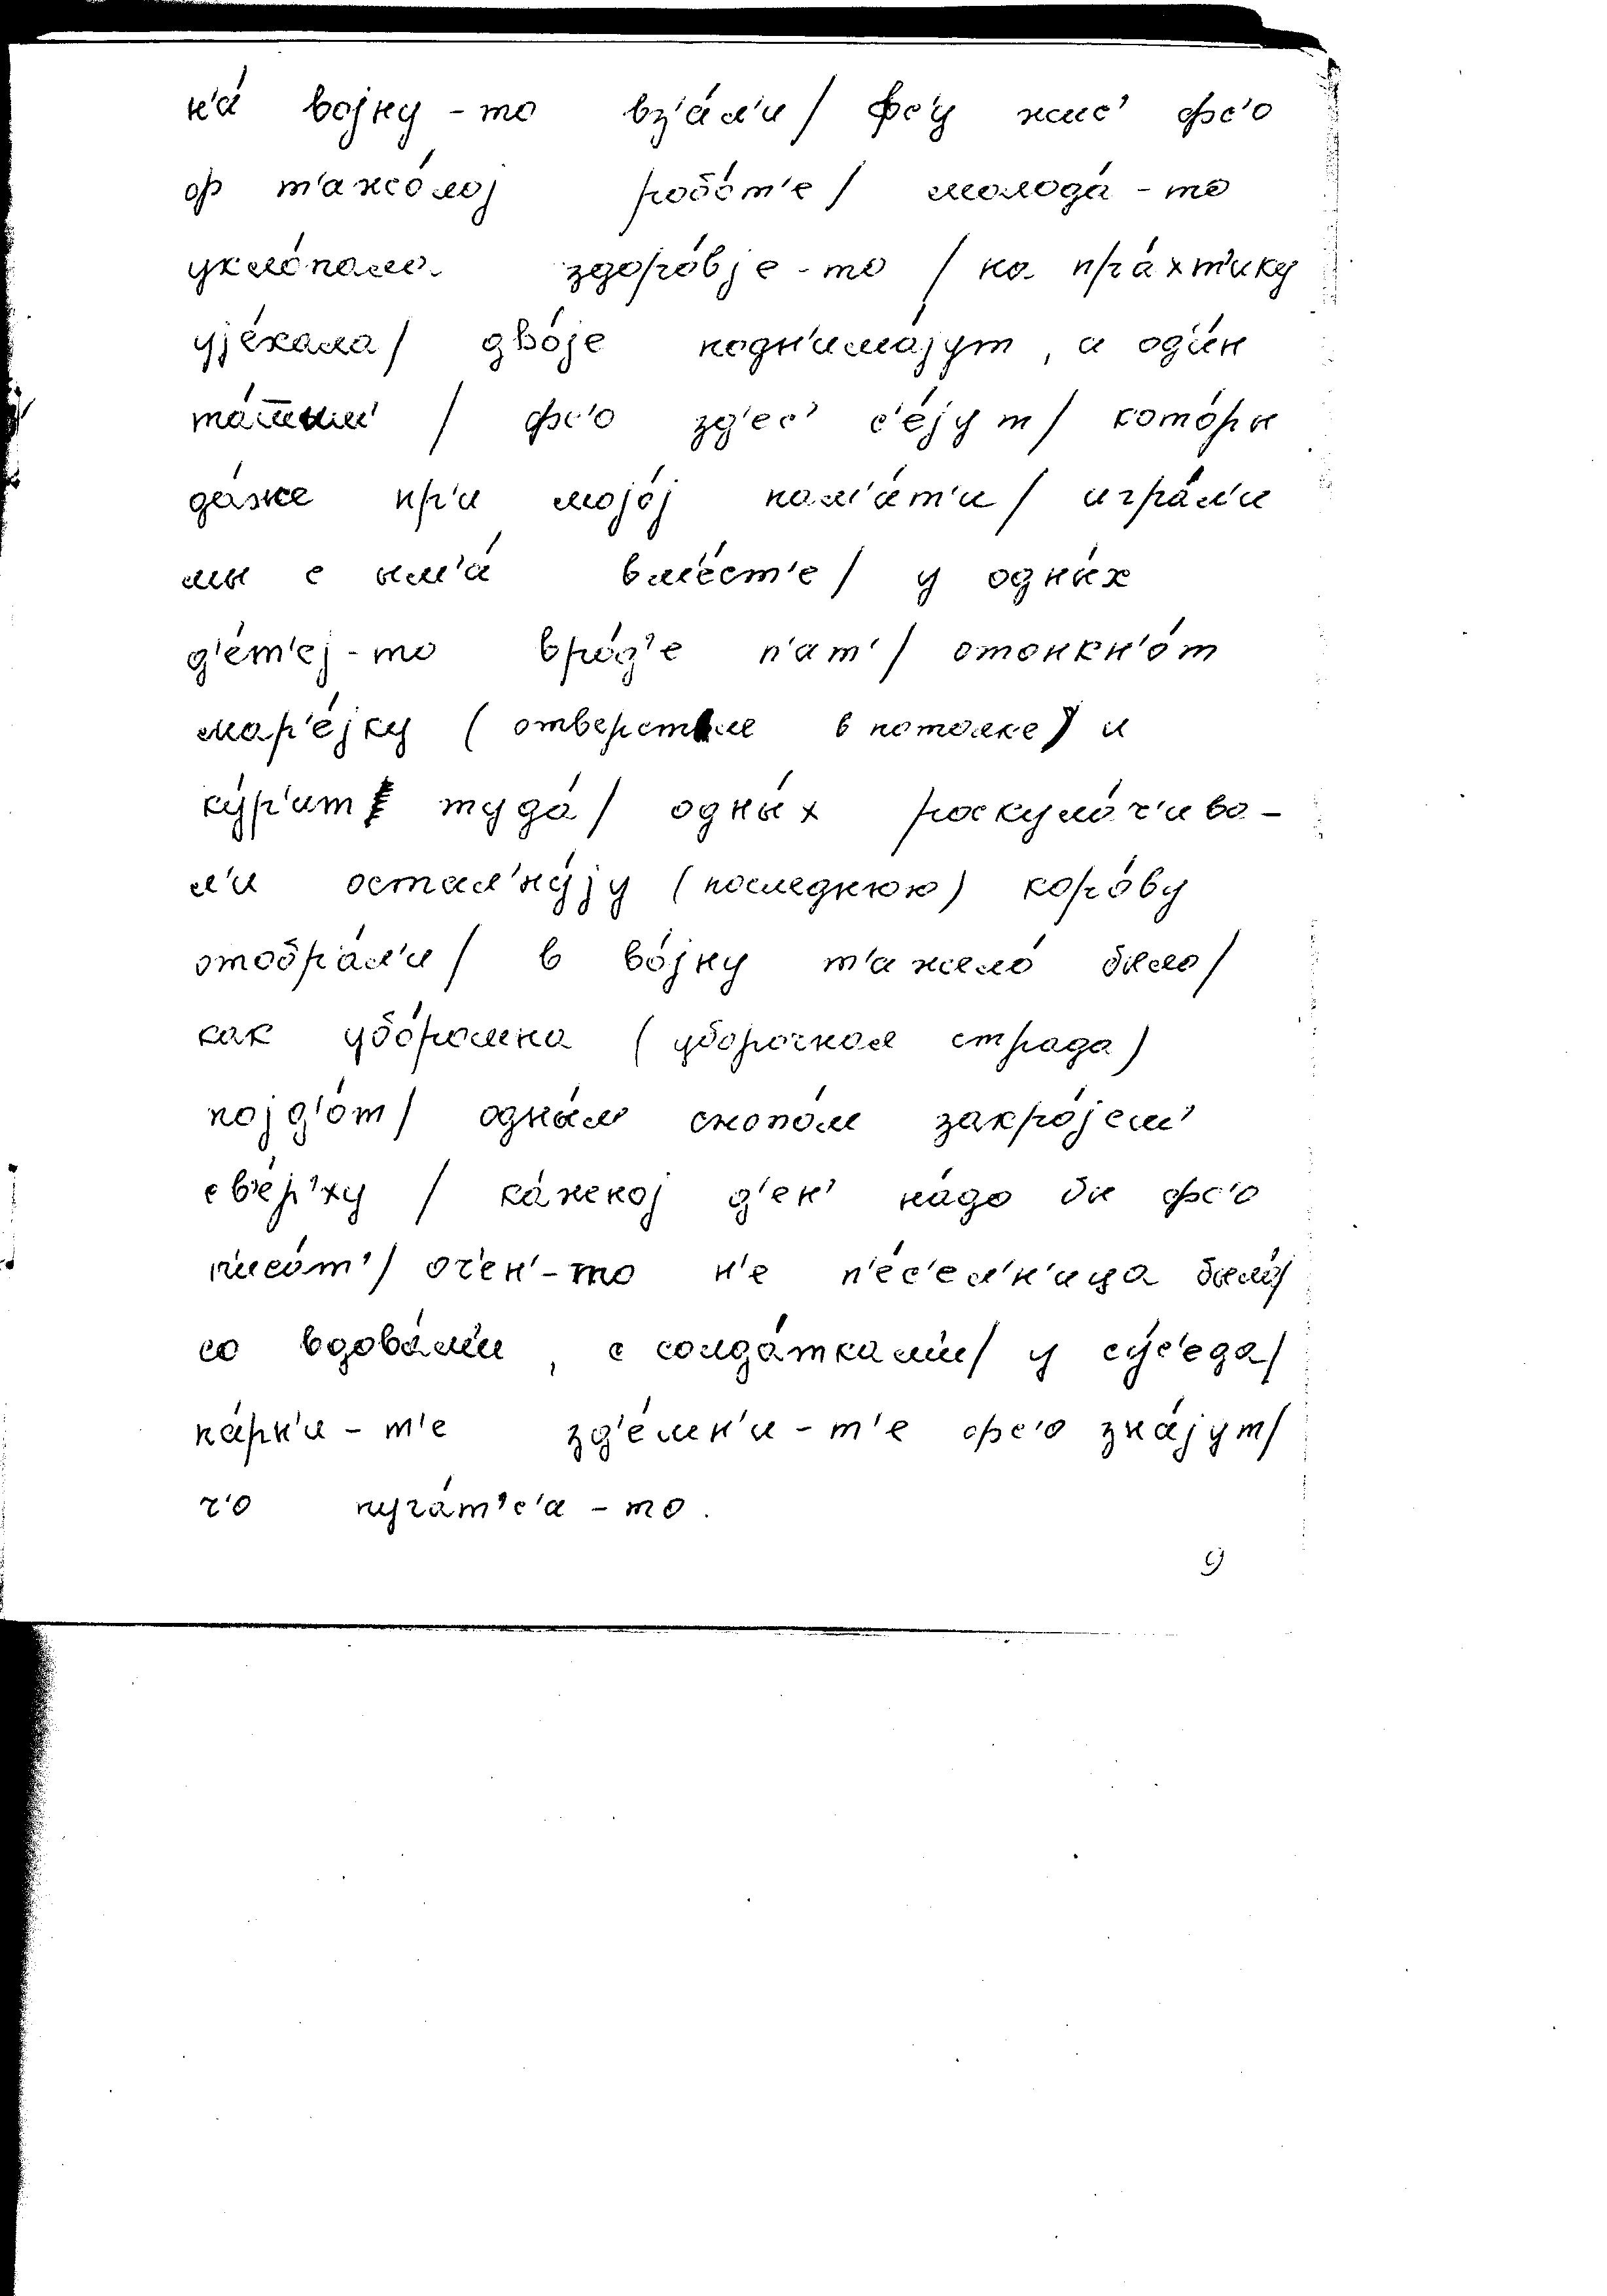 н'а́ војну - то вз'а́л'и / фс'у жис' фс'о
ф т'ажо́лој робо́т'е / молода́ - то
укло́пала здоро́вје - то / на пра́хт'ику
ује́хала / дво́је подн'има́јут , а од'и́н
та́шшым' / фс'о зд'ес' с'е́јут / кото́ры
да́же пр'и мојо́ј пам'ат'и / игра́л'и
мы с ым'а́ вм'е́ст'е / у одны́х
д'е́т'еј - то вро́д'е п'ат' / отонкн'о́т
мар'е́јку ( отверстие в потолке ) и
ку́р'ит туда́ / одны́х роскула́ч'ива -
л'и остал'ну́ју ( последнюю ) коро́ву
отобра́л'и / в во́јну т'ажело́ было /
как убо́рашна ( уборочная страда )
појд'о́т / одны́м снопо́м закро́јем'
св'е́р'ху / ка́жной д'ен' на́до бы фс'о
п'иса́т' / оч'ен' - то н'е п'е́с'ел'н'ица была́ /
со вдова́м'и , с солда́ткам'и / у су́с'еда /
па́рн'и - т'е зд'е́шн'и - т'е фс'о зна́јут /
ч'о пуга́т'с'а - то .
9